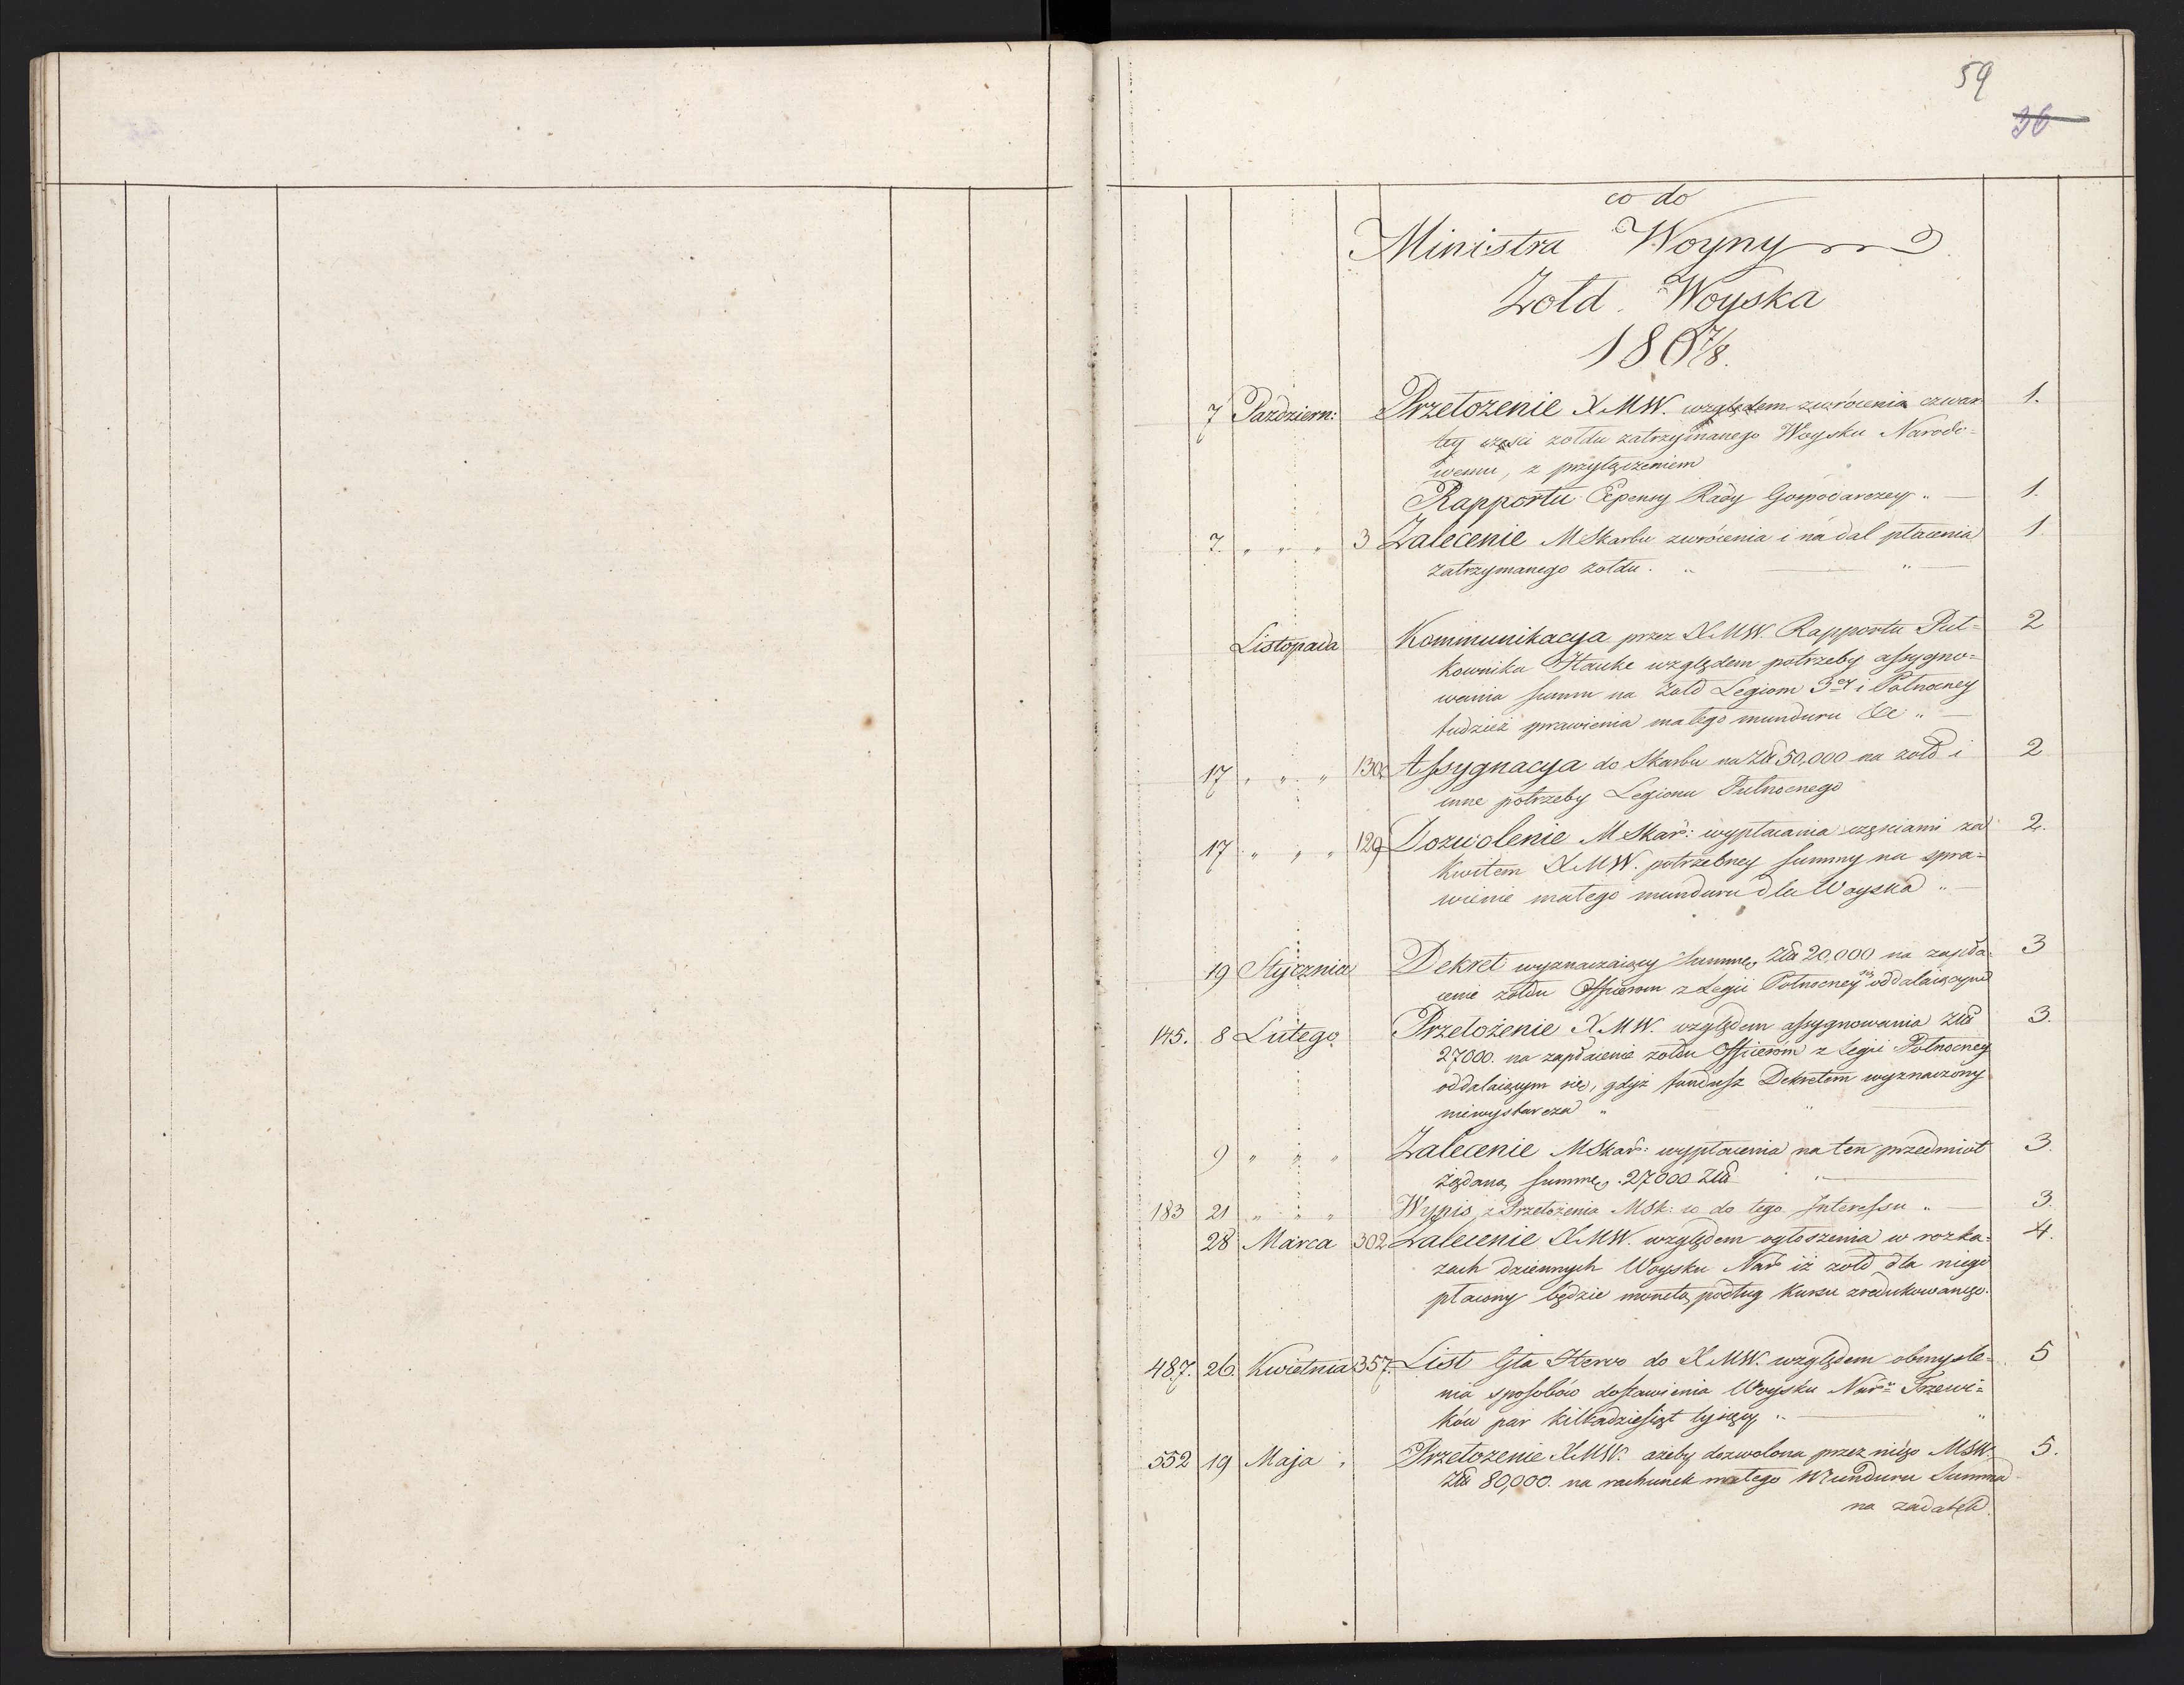 59
36
co do
Ministra Woyny
Zołd. Woyska
1807/8.
7 Pazdziern: Przełozenie XMW. względem zwrócenia czwar 1.
tey części zołdu zatrzymanego Woysku Narodo=
wemu, z przyłączeniem
Rapportu Rady Gospodarczey " — 1.
7. " " " 3 Zalecenie MSkarbu zwrócenia i nadal płacenia 1
zatrzymanego zołdu. " — " —
Listopada Kommunikacya przez XMW. Rapportu Puł= 2
kownika Hauke względem potrzeby assygno=
wania summ na Zołd Legiom 3ey i Połnocney
tudzież sprawienia małego munduru &c " —
17 " " " 130. Assygnacya do Skarbu na Złł 50,000 na zołd i 2
inne potrzeby Legionu Pułnocnego
17 " " " 129 Dozwolenie MSkar: wypłacania częściami za 2.
Kwitem XMW. potrzebney summy na spra=
wienie małego munduru dla Woyska " —
19 Stycznia Dekret wyznaczaiący Summę Złł 20,000 na zapła= 3
cenie zołdu Officerom z Legii Połnocney się oddalaiącym
145. 8 Lutego Przełożenie XMW. względem assygnowania Złł 3.
27000. na zapłacenie zołdu Officerom z Legii Połnocney
oddalaiącym się, gdyż fundusz Dekretem wyznaczony
niewystarcza " "
9 " " " Zalecenie MSkar: wypłacenia na ten przedmiot 3.
żądaną summę 27000 Złł " —
183 21 " " " Wypis z Przełożenia MSk: co do tego Interessu " — 3.
28 Marca 302 Zalecenie XMW. względem ogłoszenia w rozka= 4.
zach dziennych Woysku Nar iż zołd dla niego
płacony będzie monetą podług Kursu zredukowanego.
487. 26. Kwietnia 357. List Gła Hervo do XMW. względem obmyśle= 5
nia sposobów dostawienia Woysku Nar: Trzewi=
ków par kilkadziesiąt tysięcy " — "
552 19 Maja " Przełozenie XMW. ażeby dozwolona przez niego MSW. 5.
Złł 80,000. na rachunek małego Munduru Summa
na zadatek